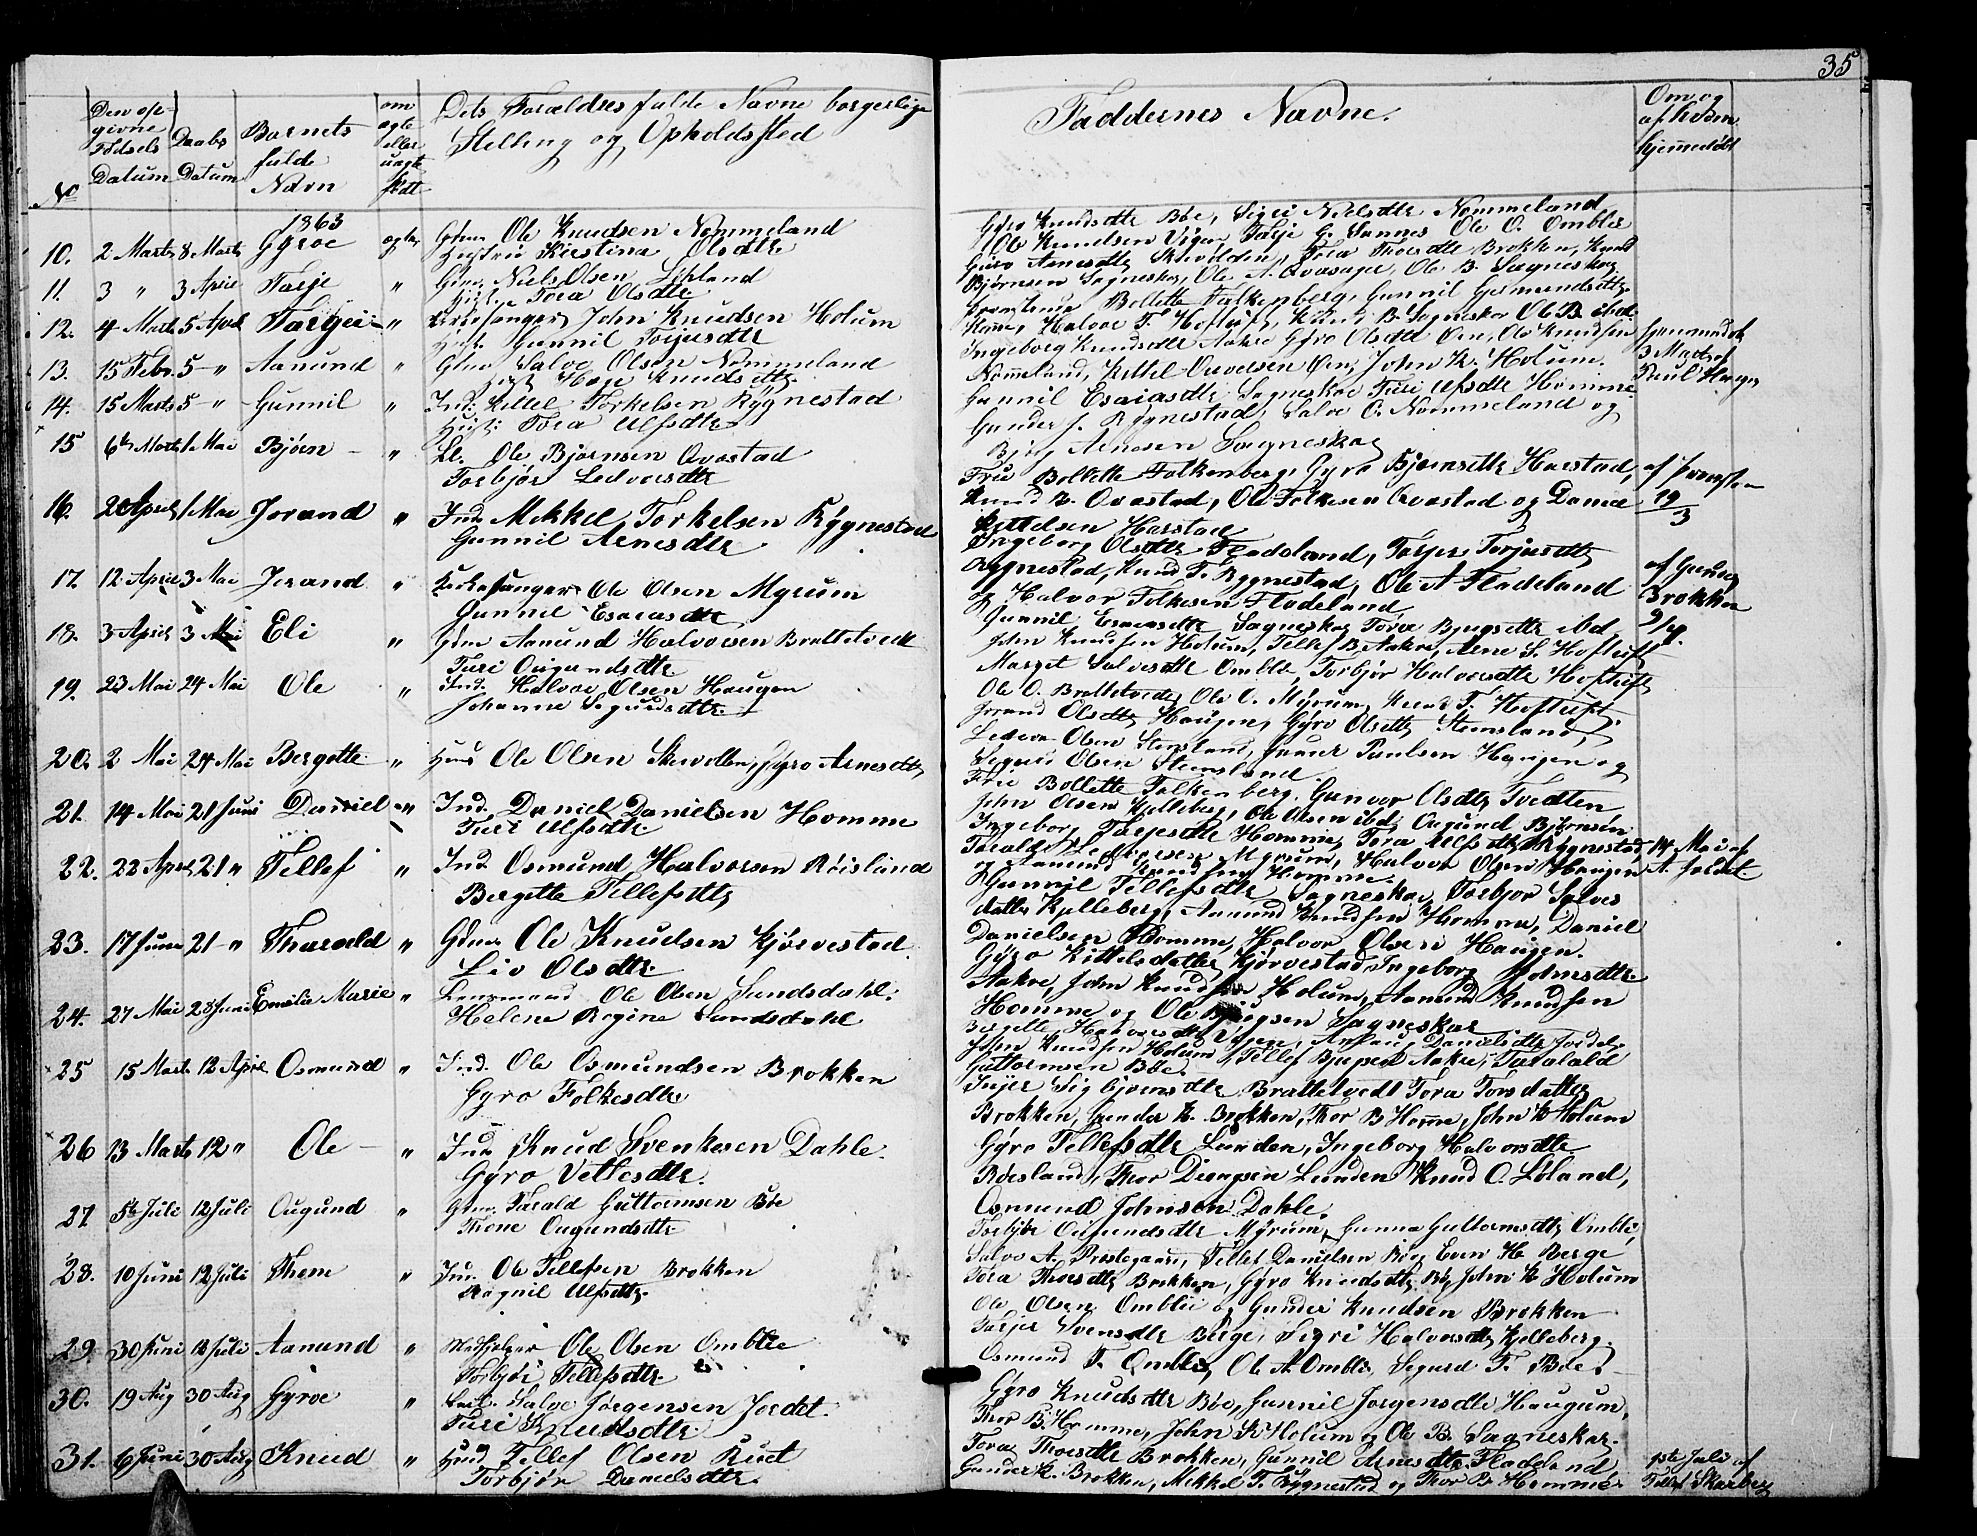 35
No
Den op-
givne
Fødsels
Datum
Daabs
Datum
Barnets
fulde
Navn
om
ægte
eller
uægte
født
Dets Forældres fulde Navne borgerlige
Stilling og Opholdssted
Faddernes Navne.
Om og
af hvem
hjemmedøbt
1863
10. 2 Marts 8 Marts Gyroe ægte Gmd. Ole Knudsen Nommeland
Hustru Kirstina Olsdtr
11. 3 " 3 April Tarje " Gmd. Niels Olsen Løyland
Hust. Tora Olsdtr
12. 4 Marts 5 April Targei " Kirkesanger John Knudsen Holum
Hust. Gunnil Torjusdtr
13. 15 Febr. 5 - " Aanund " Gmd Salve Olsen Nommeland
Hust. Hæge Knudsdtr.
14. 15 Marts 5 - " Gunnil " Ind. Kittel Torkelsen Rygnestad
Hust: Tora Ulfsdtr
15 6te Marts 1 Mai Bjørn - " Ole Bjørnsen Qvæstad
Torbjør Ledvorsdtr
16. 20 April 1 Mai Jorand " Ind. Mikkel Torkelsen Rygnestad
Gunnil Arnesdtr
17. 12 April 3 Mai Jorand " Kirkesanger Ole Olsen Myrum
Gunnil Esaiasdtr
18. 3 April 3 Mai Eli " Gdm Aamund Halvorsen Brattetvedt
Turi Ougundsdtr
19. 23 Mai 24 Mai Ole " Ind. Halvor Olsen Haugen
Johanne Sigurdsdtr.
20. 2 Mai 24 Mai Bergitte " Huus Ole Olsen Skevollen, Gyro Arnesdtr
21. 14 Mai 21 Juni Daniel " Ind. Daniel Danielsen Homme
Turi Ulfsdtr.
22. 22 April 21 " Tellef " Ind. Osmund Halvorsen Røisland
Bergitte Tellefsdtr
23. 17 Juni 21 - " Tharald " Gdm Ole Knudsen Kjørvestad.
Liv Olsdtr.
24. 27 Mai 28 Juni Emilie Marie " Lensmand Ole Olsen Sundsdahl.
Helene Regine Sundsdahl
25 15 Marts 12 April Osmund " Ind. Ole Osmundsen Brokken
Gyro Folkesdtr
26 13 Marts 12 " Ole - " Ind. Knud Svenkesen Dahle.
Gyro Vettesdtr.
27. 5te Juli 12 Juli Ougund " Gmd. Tarald Guttormsen Bøe
Thone Ougundsdtr
28. 10 Juni 12 Juli Thom " Ind. Ole Tellefsen Brokken
Ragnil Ulfsdtr.
29. 30 Juni 12 Juli Aanund " Medhjelper Ole Olsen Omblie
Torbjør Tellefsdtr.
30. 19 Aug 30 Aug Gyroe " Salve Jørgensen Jordet.
Turi Knudsdtr
31. 6 Juni 30 Aug Knud " Huus Tellef Olsen Rust
Torbjør Danielsdtr.
Gyro Knudsdtr Bøe, Sigri Nielsdtr Nommeland,
Ole Knudsen Vigen, Tarje G. Sannes Ole O. Omblie
Guro Arnesdtr Skevolden, Tora Thorsdtr Brokken, Knud
Bjørnsen Sagneskar, Ole A. Qvasager, Ole B. Sagneskar
Bollette Falkenberg, Gunnil Germundsdtr
Halvor T. Hoftuft, Knud B. Sagneskar Ole B. ibd.
Ingeborg Knudsdtr Aakre Gyro Olsdtr Øen, Ole Knudsen
Nommeland, Kittel Øen, John K. Holum.
Gunnil Esaiasdtr Sagneskar Turi Ulfsdtr Homme
Gunder J. Rygnestad, Salve O. Nommeland og
Bjørg Arnesen Sagneskar
Frue Bollette Falkenberg, Gyro Bjørnsdtr Harstad,
Knud K. Qvæstad, Ole Folkesen Qvæstad og Daniel
Kittelsen Harstad
Ingeborg Olsdtr Fladeland, Tarjer Torjusdtr
Rygnestad, Knud T. Rygnestad, Ole A Fladeland
og Halvor Folkesen Fladeland
Gunnil Esaiasdtr Sagneskar Tora Bjugsdtr ibd
John Knudsen Holum, Tellef B. Aakre, Arne S. Hoftuft
Marget Salvesdtr Omblie, Torbjør Halvorsdtr Hoftuft
Ole O. Brattetvedt, Ole O. Myrum, Knud T. Hoftuft.
Jorand Olsdtr Haugen, Gyro Olsdtr Stemsland,
Ledvor Olsen Stemsland, Gunder Paulsen Haugen og
Sigurd Olsen Stemsland
Frue Bollette Falkenberg. Gunvor Olsdtr Tvedten
John Olsen Kjelleberg, Ole Olsen ibd, Ougund Bjørnsen
Ingeborg Tarjesdtr Homme Tora Ulfsdtr Rygnestad,
Tarald Myrum, Halvor Olsen Haugen
og Aanund Knudsen Homme.
Gunnil Tellefsdtr Sagneskar, Torbjør Salves
datter Kjelleberg, Aanund Knudsen Homme, Daniel
Danielsen Homme, Halvor Olsen Haugen.
Gyro Kittelsdatter Kjørvestad Ingeborg Johnsdtr.
Aakre, John Knudsen Holum, Aanund Knudsen
Homme og Ole Bjugsen Sagneskar
Bergitte Halvorsdtr Vigen, Danielsdtr Jordet,
John Knudsen Holum, Tellef Bjugsen Aakre, Tarald
Guttormsen Bøe.
Sigbjørnsdtr Brattetvedt Tora Torsdatter
Brokken, Gunder K. Brokken, Thor B Homme, John K Holum
Gyro Tellefsdtr Lunden, Ingeborg Halvorsdtr
Røisland, Thor Drengsen Lunden Knud O. Løland,
Osmund Johnsen Dahle.
Torbjør Ougundsdtr Myrum, Gunna Guttormsdtr Omblie,
Salve A. Præstegaard, Tellef Danielsen Even H. Berge
Tora Thorsdtr Brokken, Gyro Knudsdtr Bø, John K Holum
Ole Olsen Omblie og Gunder Knudsen Brokken
Tarjer Svensdtr Berge, Sigri Halvorsdtr Kjelleberg.
Osmund T. Omblie, Ole A. Omblie, Sigurd T. Bøe.
Gyro Knudsdtr Bøe, Gunnil Jørgensdtr Haugum,
Thor B. Homme, John K Holum og Ole B. Sagneskar.
Tora Thorsdtr Brokken, Gunnil Arnesdtr Fladeland
Gunder K. Brokken, Mikkel T. Rygnestad og Thor B. Homme.
3 Marts af
Paul Haugen
af
19/3
af Gunder
Brokken
9/4.
14 Mai af
A. Jordet.
1ste Juli af
Tellef Skarberg